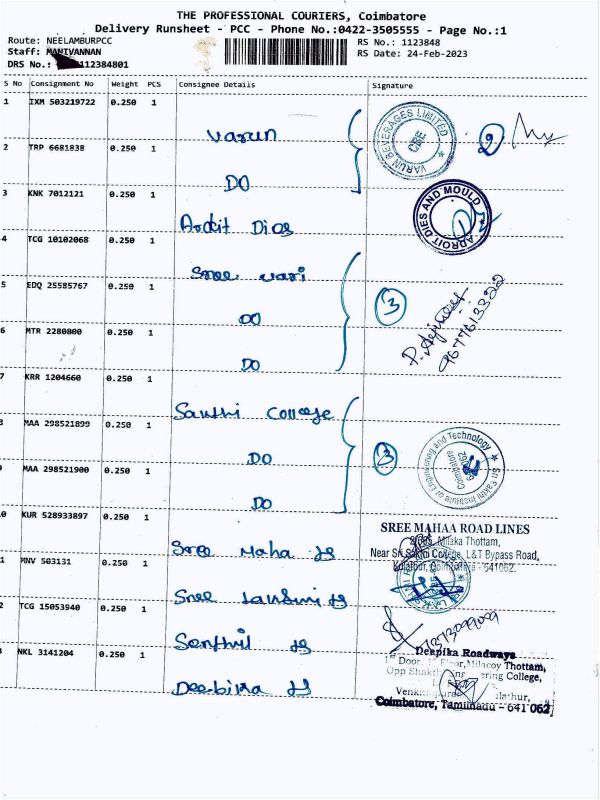 THE PROFESSIONAL COURIERS, Coimbatore
Delivery Runsheet - PCC - Phone No.:0422-3505555 - Page No.:1
Route: NEELAMBURPCC
RS No.: 1123848
Staff: MANIVANNAN
RS Date: 24-Feb-2023
DRS No.: 112384801
S No Consignment No Weight PCS Consignee Details Signature
1 IXM 503219722 0.250 1 Varun
VARUN BEVERAGES LIMITED
CBE
2
2 TRP 6681838 0.250 1 DO
3 KNK 7012121 0.250 1 Ardit Dies
ADROIT DIES AND MOULD
4 TCG 10102068 0.250 1 Sree vari
5 EDQ 25585767 0.250 1 DO
3
9677613322
6 MTR 2280800 0.250 1 DO
7 KRR 1204660 0.250 1 Sakthi College
8 MAA 298521899 0.250 1 DO
3
Sri Sakthi Institute of Engineering and Technology
Coimbatore
9 MAA 298521900 0.250 1 DO
0 KUR 528933897 0.250 1 Sree Maha
SREE MAHAA ROAD LINES
Milaka Thottam,
Near Sri Sakthi College, L&T Bypass Road,
Coimbatore - 641062.
1 MNV 503131 0.250 1 Sree Lakshmi
2 TCG 15053940 0.250 1 Senthil
3 NKL 3141204 0.250 1 Deebika
Deepika Roadways
1st Door, Floor, Milacoy Thottam,
Opp Shakthi Engineering College,
Coimbatore, Tamilnadu - 641 062